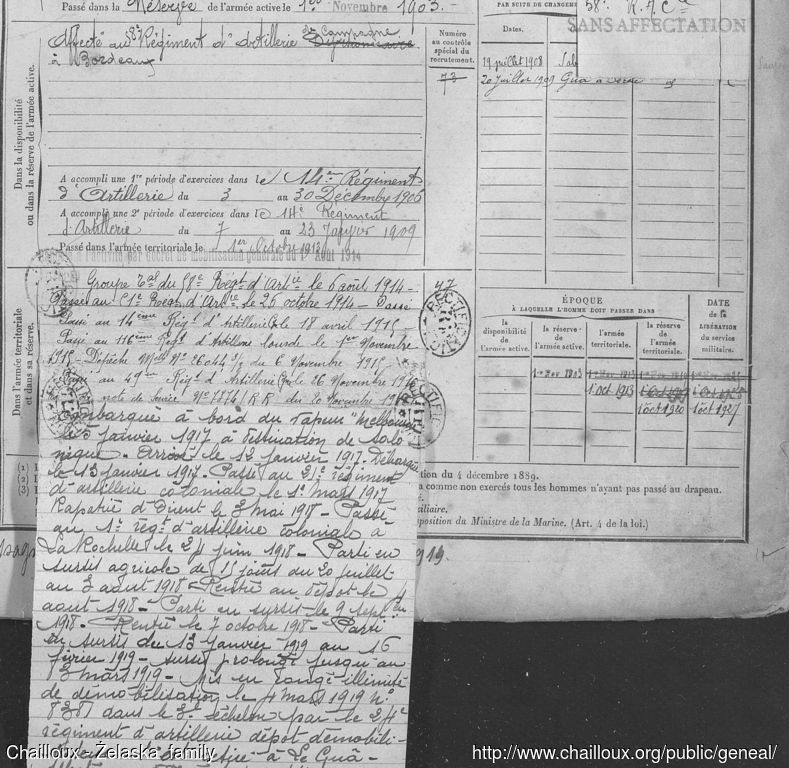 Passé dans la Réserve de l'armée active le 1er Novembre 1903.
Affecté au 58e Régiment d'Artillerie de Campagne
à Bordeaux
Dans la disponibilité
ou dans la réserve de l'armée active.
A accompli une 1re période d'exercices dans le 14e Régiment
d'Artillerie du 3 au 30 Décembre 1906
A accompli une 2e période d'exercices dans le 14e Régiment
d'Artillerie du 7 au 23 Janvier 1909
Passé dans l'armée territoriale le 1er Octobre 1913
décret de mobilisation générale du 1er Août 1914
Numéro
au contrôle
spécial du
recrutement.
73
PAR SUITE DE CHANGEM
Dates.
58e R.A.C
SANS AFFECTATION
19 juillet 1908
20 Juillet 1909 Gua
Dans l'armée territoriale
et dans sa réserve.
Groupe Tal du 58e Régt d'Artie le 6 août 1914 -
Passé au Régt d'Artie le 26 octobre 1914 -
Passé au 14ème Régt d'Artillerie le 18 avril 1915 -
Passé au 116ème Régt d'Artillerie lourde le 1er Novembre
1915 - Dépêche du 6 Novembre 1915
au 49ème Régt d'Artillerie le 26 Novembre 1916
note de service du 20 Novembre 1916
RECTIFICATION
Embarqué à bord du vapeur "Melbourne"
le 5 janvier 1917 à destination de Salo
nique. Arrivé le 12 janvier 1917. Débarqué
le 13 janvier 1917. Passé au 21e régiment
d'artillerie coloniale le 1er mars 1917
Rapatrié d'Orient le 3 mai 1918 - Passé
au 1er régt d'artillerie coloniale à
La Rochelle le 24 juin 1918 - Parti en
sursis agricole de 15 jours du 20 juillet
au 3 août 1918 - Rentré au dépôt le 4
août 1918 - Parti en sursis le 9 sept en
1918. - Rentré le 7 octobre 1918 - Parti
en sursis du 13 janvier 1919 au 16
février 1919 - sursis prolongé jusqu'au
3 mars 1919 - Mis en congé illimité
de démobilisation le 4 mars 1919 No
8381 dans le 3e échelon par le 24e
régiment d'artillerie dépôt démobili-
se retire à Le Gua -
ÉPOQUE
À LAQUELLE L'HOMME DOIT PASSER DANS
la
disponibilité
de
l'armée active.
la réserve
de
l'armée active.
l'armée
territoriale.
la réserve
de l'armée
territoriale.
DATE
de la
LIBÉRATION
du service
militaire.
1er Nov 1903
1 oct 1913
1 oct 1920 1 oct 1927
(1)
(2)
(3)
tion du 4 décembre 1889.
a comme non exercés tous les hommes n'ayant pas passé au drapeau.
iliaire.
sposition du Ministre de la Marine. (Art. 4 de la loi.)
919.
Chailloux - Żelaska family
http://www.chailloux.org/public/geneal/